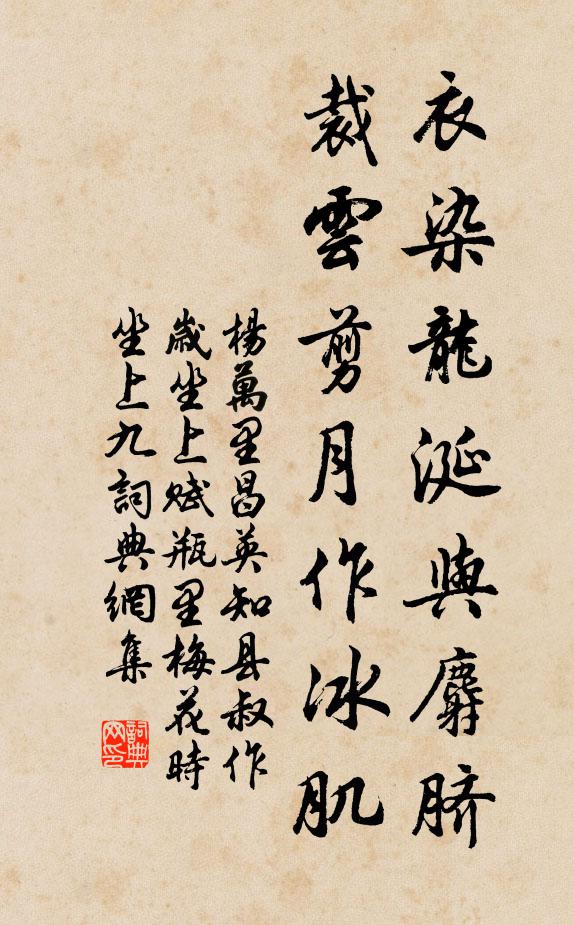 衣染龍涎與麝脐
裁雲剪月作冰肌
楊萬里昌英知县叔作
歲坐上赋瓶里梅花時
坐上九詞典網集
詞典网印